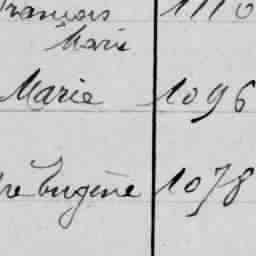 François 1110
Marie
Marie 1096
re Eugène 1078